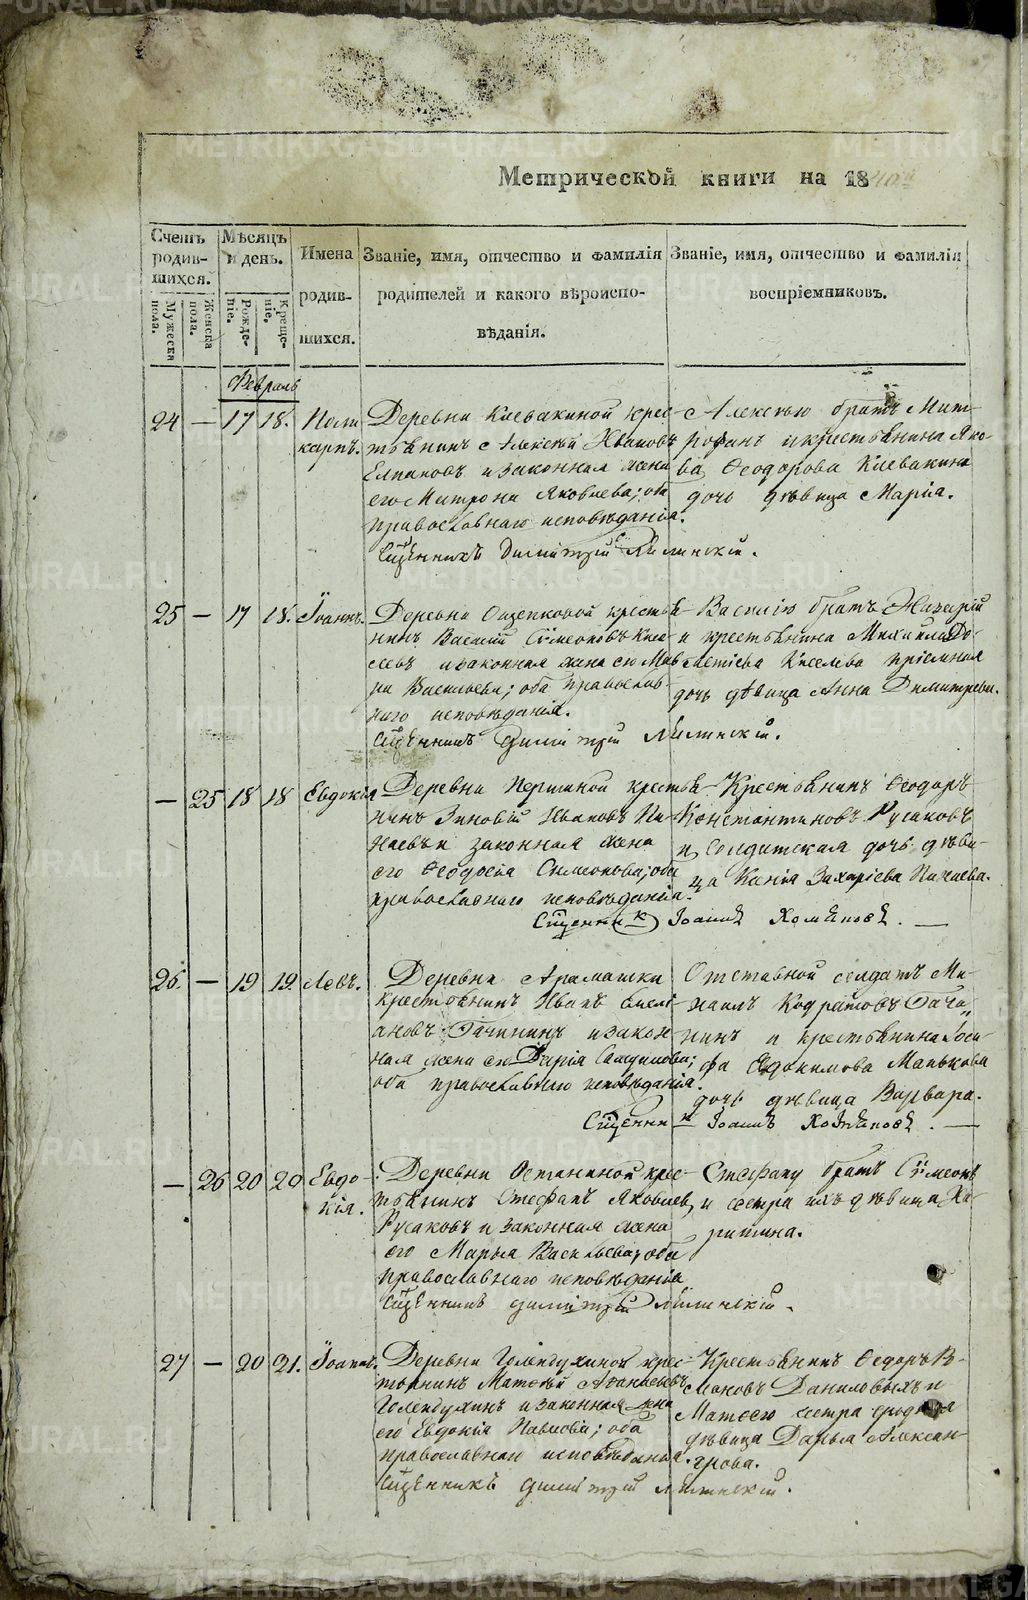 Метрической книги на 18
Счетъ родив-шихся.
Мужеска пола.
Женска пола.
Мѣсяцъ и день.
Рожде-ніе.
Креще-ніе.
Имена родив-шихся.
Званіе, имя, отчество и фамилія
родителей и какого вѣроиспо-
вѣданія.
Званіе, имя, отчество и фамилія
воспріемниковъ.
Февраль
24 — 17 18. Поли-
карпъ.
Деревни Клевакиной крес-
тьянинъ Алексѣй Ивановъ
и законная жена
его Матрона Яковлева; оба
православнаго исповѣданія.
Сщенникъ Димитрій
Алексѣю братъ Мит-
рофанъ и крестьянина Яко-
ва Ѳеодорова Клевакина
дочь дѣвица Марія.
25 — 17 18. Іоаннъ.
Деревни Ощепковой крестья-
нинъ Василій Сѵмеоновъ Кисе-
левъ и законная жена его Мав-
ра Васильева; оба православ-
наго исповѣданія.
Сщенникъ Димитрій
Василію братъ Назарій
и крестьянина Михаила
Киселева пріемная
дочь дѣвица Анна Димитріева.
— 25 18 18 Евдокія
Деревни Першиной крестья-
нинъ Зиновій Ивановъ Пи-
наевъ и законная жена
его Ѳеодосія Симеонова; оба
православнаго исповѣданія.
Крестьянинъ Ѳеодоръ
Константиновъ Русаковъ
и солдатская дочь дѣви-
ца Ксенія Захаріева Пинаева.
Сщенникъ Іоаннъ Хомяковъ.
26. — 19 19. Левъ.
Деревни Арамашки
крестьянинъ Иванъ Емелі-
ановъ Гачининъ и закон-
ная жена его Дарія Самуилова;
оба православнаго исповѣданія.
Отставной солдатъ Ми-
хаилъ Кодратовъ Гачи-
нинъ и крестьянина Іоси-
фа Евдокимова Манькова
дочь дѣвица Варвара.
Сщенникъ Іоаннъ Хомяковъ.
— 26 20 20 Евдо-
кія.
Деревни Останиной крес-
тьянинъ Стефанъ Яковлевъ
Русаковъ и законная жена
его Марья Васильева; оба
православнаго исповѣданія
Сщенникъ Димитрій
Стефану братъ Сѵмеонъ
и сестра ихъ дѣвица Ха-
ритина.
27 — 20 21. Іоаннъ.
Деревни Голендухиной крес-
тьянинъ Матѳей Аѳанасьевъ
Голендухинъ и законная жена
его Евдокія Павлова; оба
православнаго исповѣданія.
Сщенникъ Димитрій
Крестьянинъ Ѳедоръ
Даниловыхъ и
Матѳею сестра сродная
дѣвица Дарья Алексан-
дрова.
METRIKI.GASO-URAL.RU